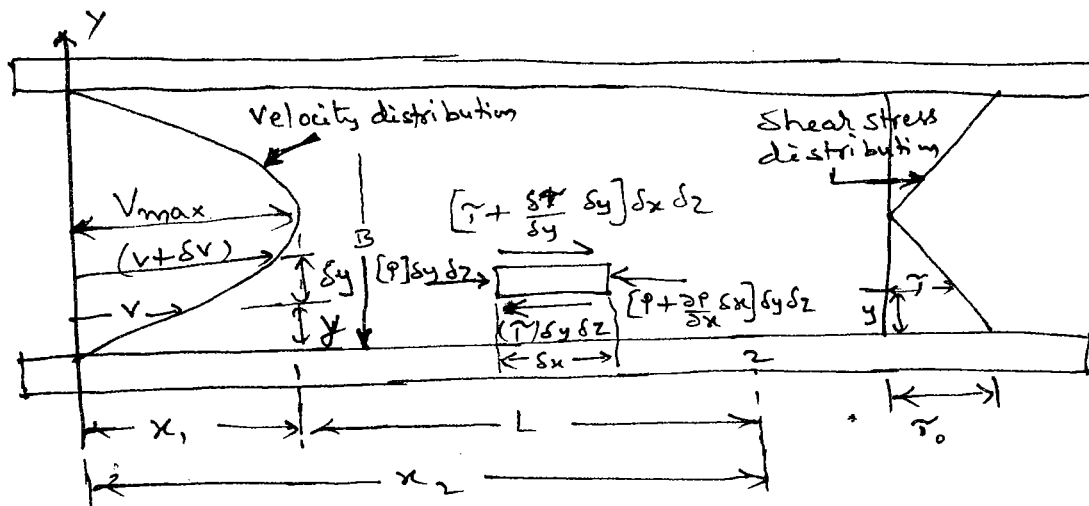 Y
Velocity distribution
Shear stress
distribution
Vmax
[τ + δτ/δy δy] δx δz
(v+δv)
B
δy
[P] δy δz
[P + ∂P/∂x δx] δy δz
v
y
(τ) δy δz
δx
τ
y
1
2
x₁
L
τ₀
x₂